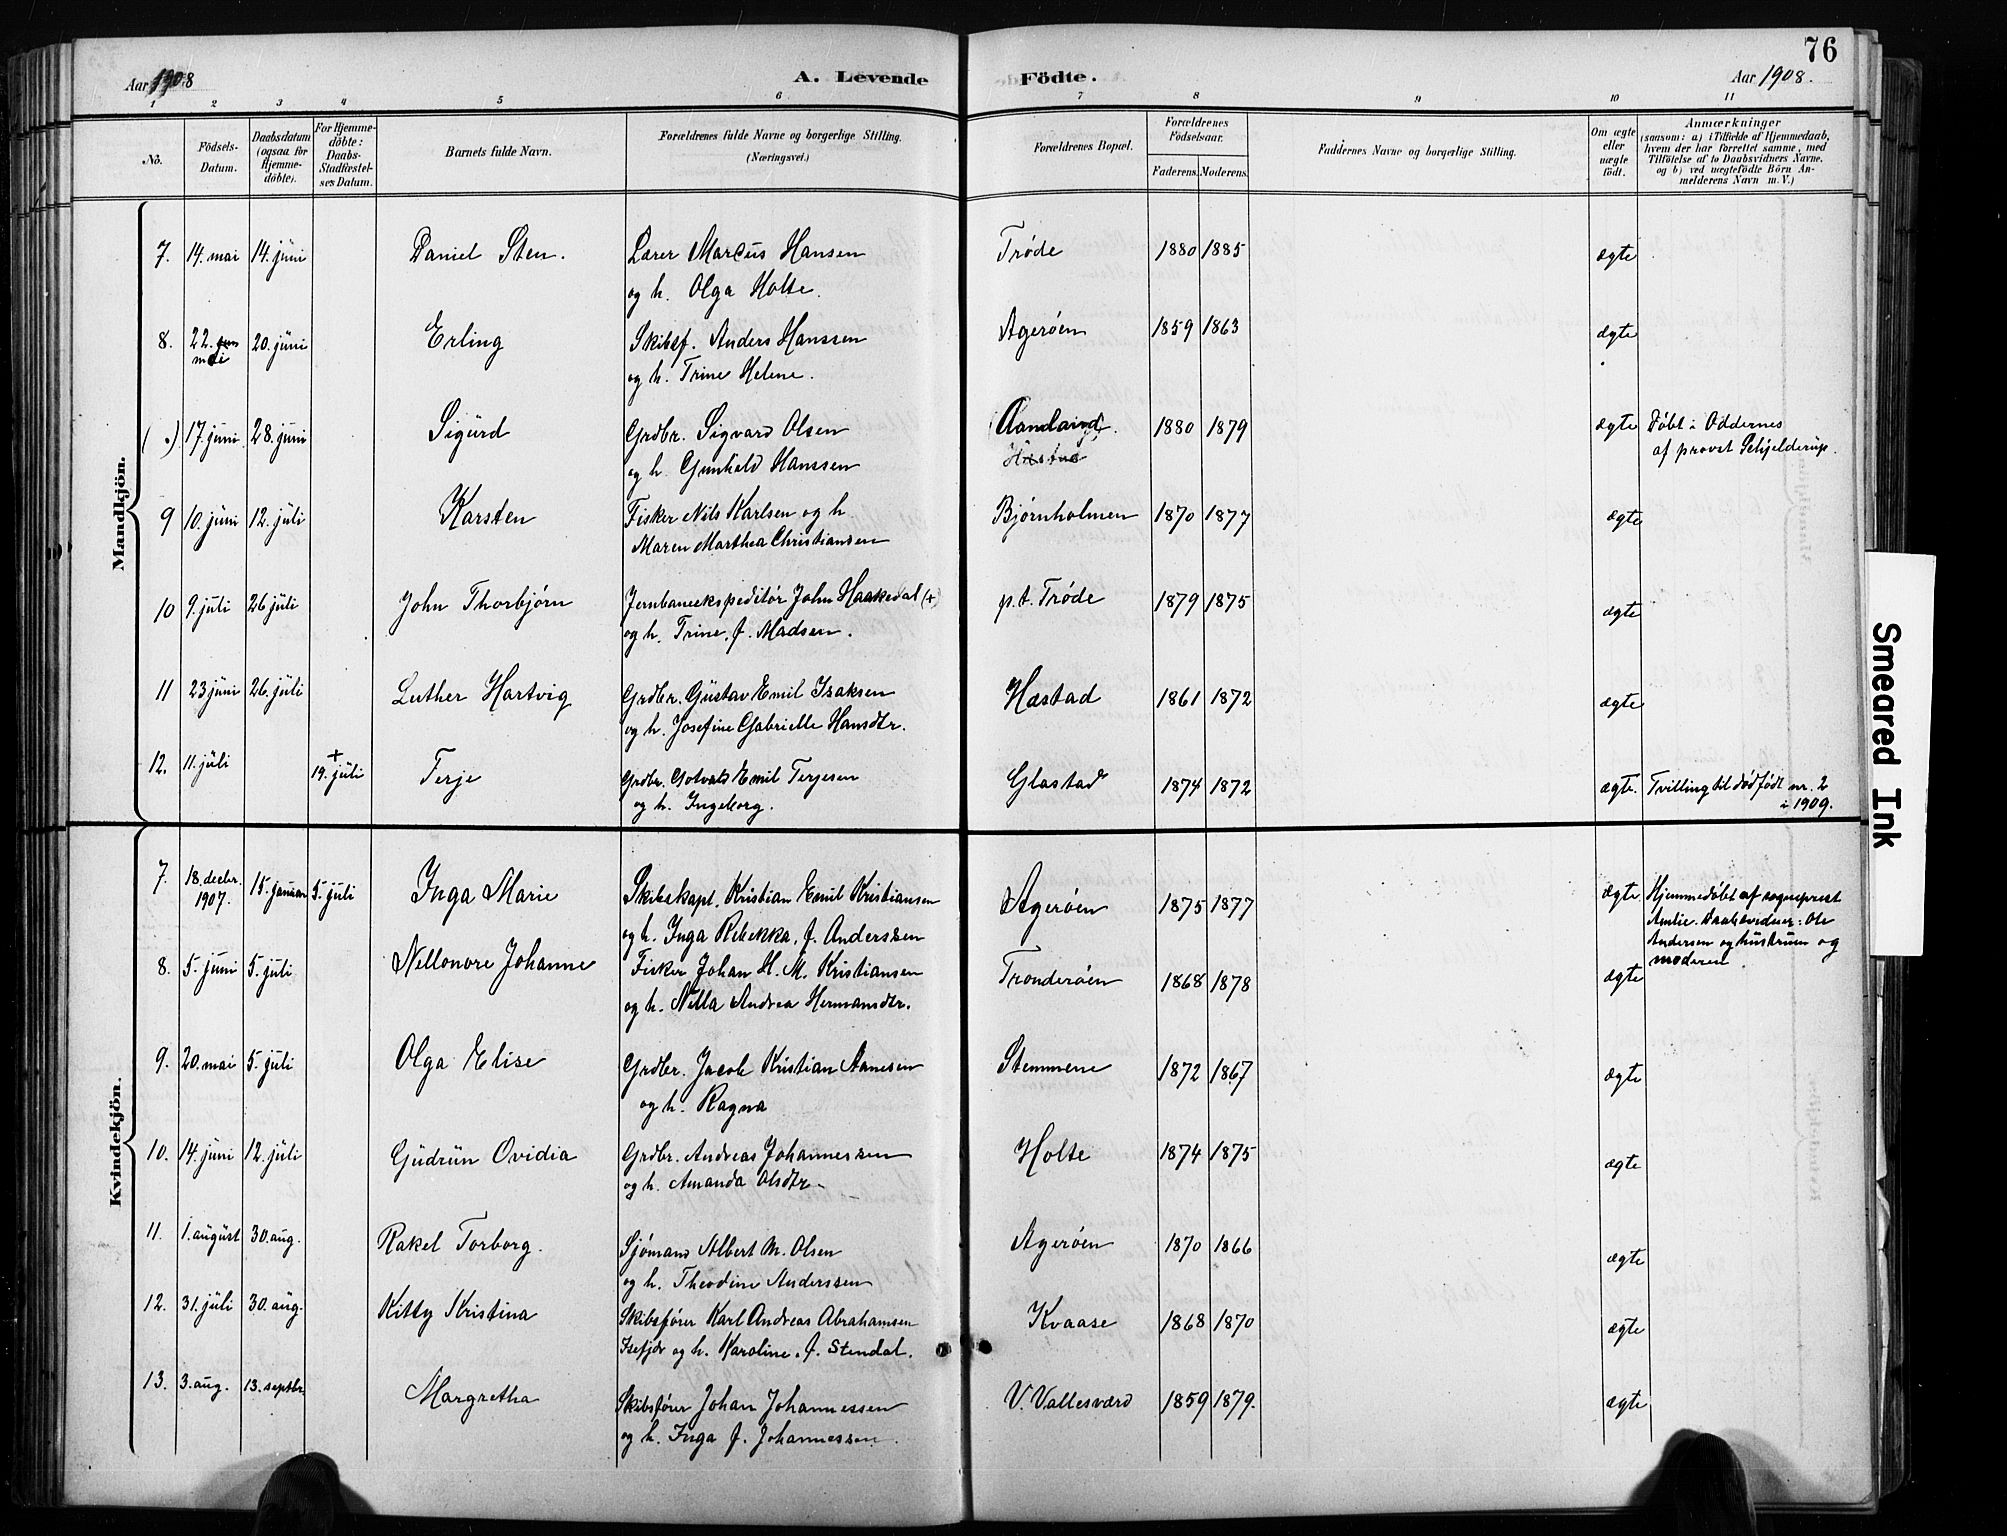 76
Aar 1908
A. Levende
Födte.
Aar 1908.
1 2 3 4 5 6 7 8 9 10 11
No.
Födsels-Datum.
Daabsdatum (ogsaa for Hjemme-döbte).
For Hjemme-döbte: Daabs-Stadfæstel-ses Datum.
Barnets fulde Navn.
Forældrenes fulde Navne og borgerlige Stilling.
(Næringsvei.)
Forældrenes Bopæl.
Forældrenes Födselsaar.
Faderens. Moderens.
Faddernes Navne og borgerlige Stilling.
Om ægte eller uægte födt.
Anmærkninger
(saasom: a) i Tilfælde af Hjemmedaab, hvem der har forrettet samme, med Tilföielse af to Daabsvidners Navne. og b) ved uægtefödte Börn An-melderens Navn m. V.)
Mandkjön.
7. 14. mai 14. juni Daniel Sten. Lærer Marcus Hansen Trøde 1880 1885 ægte
og h. Olga Holte.
8. 22. mai 20. juni Erling Skibsf. Anders Hanssen Agerøen 1859 1863 ægte
og h. Trine Helene.
( . ) 17. juni 28. juni Sigurd Grdbr. Sigvard Olsen Aamland 1880 1879 ægte Døbt i Oddernes
og h. Gunhild Hanssen af provst Schjelderup.
9 10. juni 12. juli Karsten Fisker Nils Karlsen og h. Bjørnholmen 1870 1877 ægte
Maren Marthea Christiansen
10 9. juli 26 juli John Thorbjørn Jernbaneekspeditør John Haakedal (+) p.t. Trøde 1879 1875 ægte
og h. Trine, f. Madsen.
11 23 juni 26. juli Luther Hartvig Grdbr. Gustav Emil Isaksen Hæstad 1861 1872 ægte
og h. Josefine Gabrielle Hansdtr.
12. 11. juli + 19. juli Terje Grdbr. Gotvald Emil Terjesen Glastad 1874 1872 ægte. Tvilling til dødfødt nr. 2
og h. Ingeborg. i 1909.
Kvindekjön.
7. 18. decbr. 1907. 15. januar 5. juli Inga Marie Skibskapt. Kristian Emil Kristiansen Agerøen 1875 1877 ægte. Hjemmedøbt af sogneprest
og h. Inga Rebekka, f. Anderssen Amlie. Daabsvidner: Ole
Andersen og hustrum og
moderen.
8. 5. juni 5. juli Nellonore Johanne Fisker Johan H. M. Kristiansen Tronderøen 1868 1878 ægte
og h. Nilla Andrea Hermansdtr.
9. 20. mai 5. juli Olga Elise Grdbr. Jacob Kristian Aanesen Stemmene 1872 1867 ægte
og h. Ragna
10. 14. juni 12. juli Gudrun Ovidia Grdbr. Andreas Johannessen Holte 1874 1875 ægte
og h. Amanda Olsdtr.
11. 1. august 30. aug. Rakel Torborg. Sjømand Albert M. Olsen Agerøen 1870 1866 ægte
og h. Theodine Anderssen
12. 31. juli 30. aug. Kitty Kristina Skibsfører Karl Andreas Abrahamsen Kvaase 1868 1870 ægte
Isefjær og h. Karoline, f. Stendal.
13. 3. aug. 13. septbr. Margretha Skibsfører Johan Johannessen V. Vallesværd 1859 1879. ægte
og h. Inga f. Johannessen.
Smeared Ink